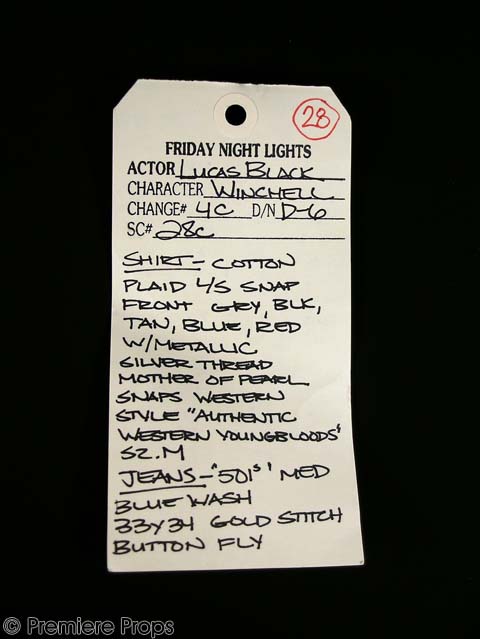 28
FRIDAY NIGHT LIGHTS
ACTOR LUCAS BLACK
CHARACTER WINCHELL
CHANGE# 4C D/N D-6
SC# 28C
SHIRT - COTTON
PLAID L/S SNAP
FRONT GRY, BLK,
TAN, BLUE, RED
W/METALLIC
SILVER THREAD
MOTHER OF PEARL
SNAPS WESTERN
STYLE "AUTHENTIC
WESTERN YOUNGBLOODS"
SZ. M
JEANS - "501s" MED
BLUE WASH
33x34 GOLD STITCH
BUTTON FLY
© Premiere Props